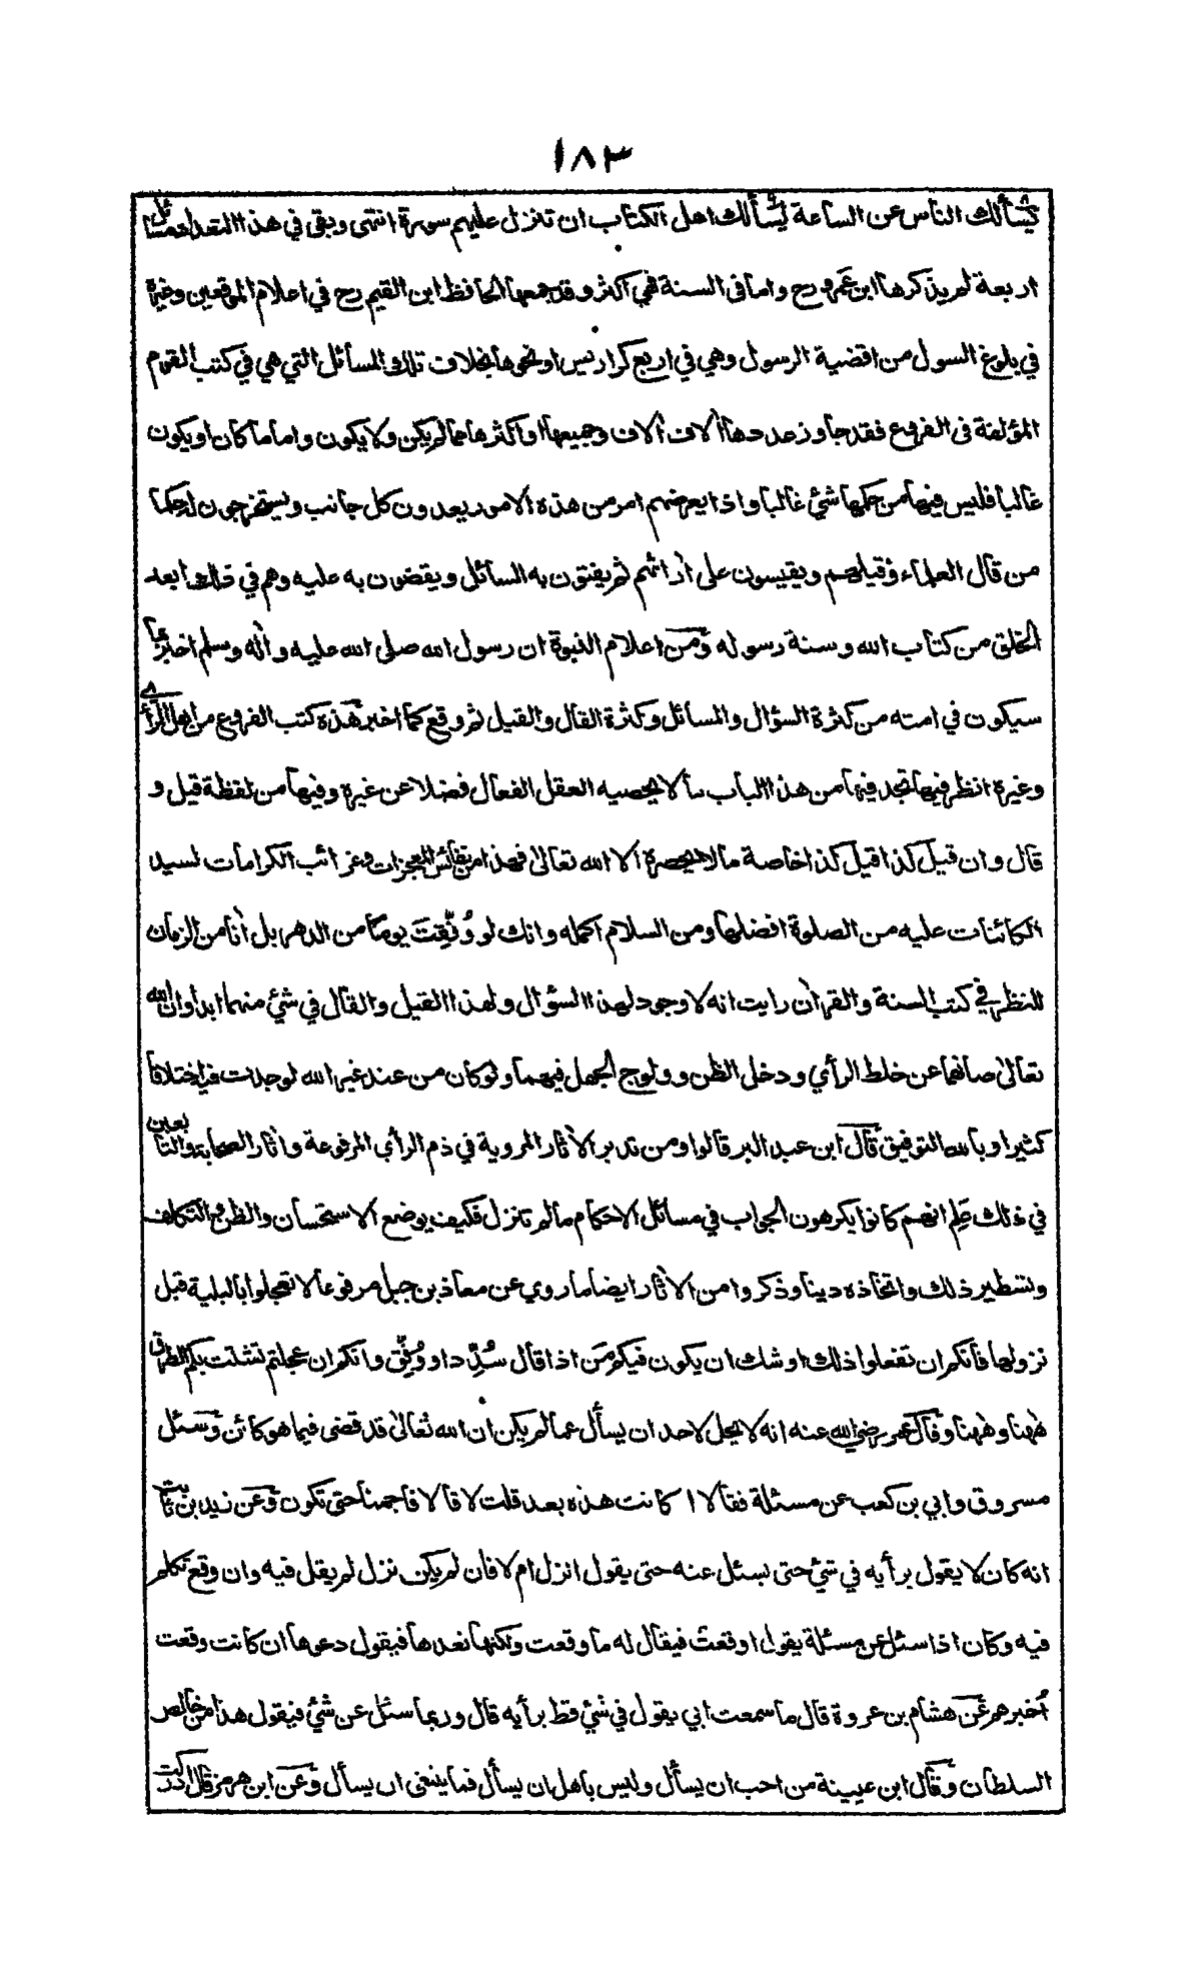 ١٨٣
يسألك الناس عن الساعة يسألك اهل الكتاب ان تنزل عليهم سورة انتهى وبقي في هذا التعداد مسائل
اربعة لم يذكرها ابن عمرو رح واما في السنة فهي اكثر وقد جمعها الحافظ ابن القيم رح في اعلام الموقعين وغيره
في بلوغ السول من اقضية الرسول وهي في اربع كراريس او نحوها بخلاف تلك المسائل التي هي في كتب القوم
المؤلفة في الفروع فقد جاوز عددها ألاف ألاف وجميعها او اكثرها مما لم يكن ولا يكون واما ما كان او يكون
غالبا فليس فيها من حكمها شئ غالبا واذا يعرضهم امر من هذه الامور يعدون كل جانب ويستخرجون له حكما
من قال العلماء وقيلهم ويقيسون على أرائهم ثم يفتون به السائل ويقضون به عليه وهم في ذلك ابعد
الخلق من كتاب الله وسنة رسوله ومن اعلام النبوة ان رسول الله صلى الله عليه وأله وسلم اخبر بما
سيكون في امته من كثرة السؤال والمسائل وكثرة القال والقيل ثم وقع كما اخبر هذه كتب الفروع من اهل الرأي
وغيره انظر فيها تجد فيها من هذا الباب ما لا يحصيه العقل الفعال فضلا عن غيره وفيها من لفظة قيل و
قال وان قيل كذا قيل كذا خاصة ما لا يحصره الا الله تعالى فهذا من نفائس المعجزات وغرائب الكرامات لسيد
الكائنات عليه من الصلوة افضلها ومن السلام اكمله وانك لو وُفِّقت يوما من الدهر بل أنا من الزمان
للنظر في كتب السنة والقرأن رايت انه لا وجود لهذا السؤال ولهذا القيل والقال في شئ منهما ابدا وان الله
تعالى صانهما عن خلط الرأي ودخل الظن وولوج الجهل فيهما ولو كان من عند غير الله لوجدت فيه اختلافا
كثيرا وبالله التوفيق قال ابن عبد البر قالوا ومن تدبر الأثار المروية في ذم الرأي المرفوعة وأثار الصحابة والتابعين
في ذلك علم انهم كانوا يكرهون الجواب في مسائل الاحكام ما لم تنزل فكيف يوضع الاستحسان والظن والتكلف
وتسطير ذلك واتخاذه دينا وذكروا من الأثار ايضا ما روي عن معاذ بن جبل مرفوعا لا تعجلوا بالبلية قبل
نزولها فانكم ان تفعلوا ذلك اوشك ان يكون فيكم من اذا قال سُدِّد او وُفِّق وانكم ان عجلتم تشتت بكم الطرق
ههنا وههنا وقال عمر رضي الله عنه انه لا يحل لاحد ان يسأل عما لم يكن ان الله تعالى قد قضى فيما هو كائن وسئل
مسروق وابي بن كعب عن مسئلة فقالا ا كانت هذه بعد قلت لا قالا فاجمنا حتى تكون وعن زيد بن ثابت
انه كان لا يقول برأيه في شئ حتى يسئل عنه حتى يقول انزل ام لا فان لم يكن نزل لم يقل فيه وان وقع تكلم
فيه وكان اذا سئل عن مسئلة يقول اوقعت فيقال له ما وقعت ولكنها نعدها فيقول دعوها ان كانت وقعت
أخبرهم عن هشام بن عروة قال ما سمعت ابي يقول في شئ قط برأيه قال وربما سئل عن شئ فيقول هذا من خالص
السلطان وقال ابن عيينة من احب ان يسأل وليس باهل ان يسأل فما ينبغي ان يسأل وعن ابن هرمز قال ادركت